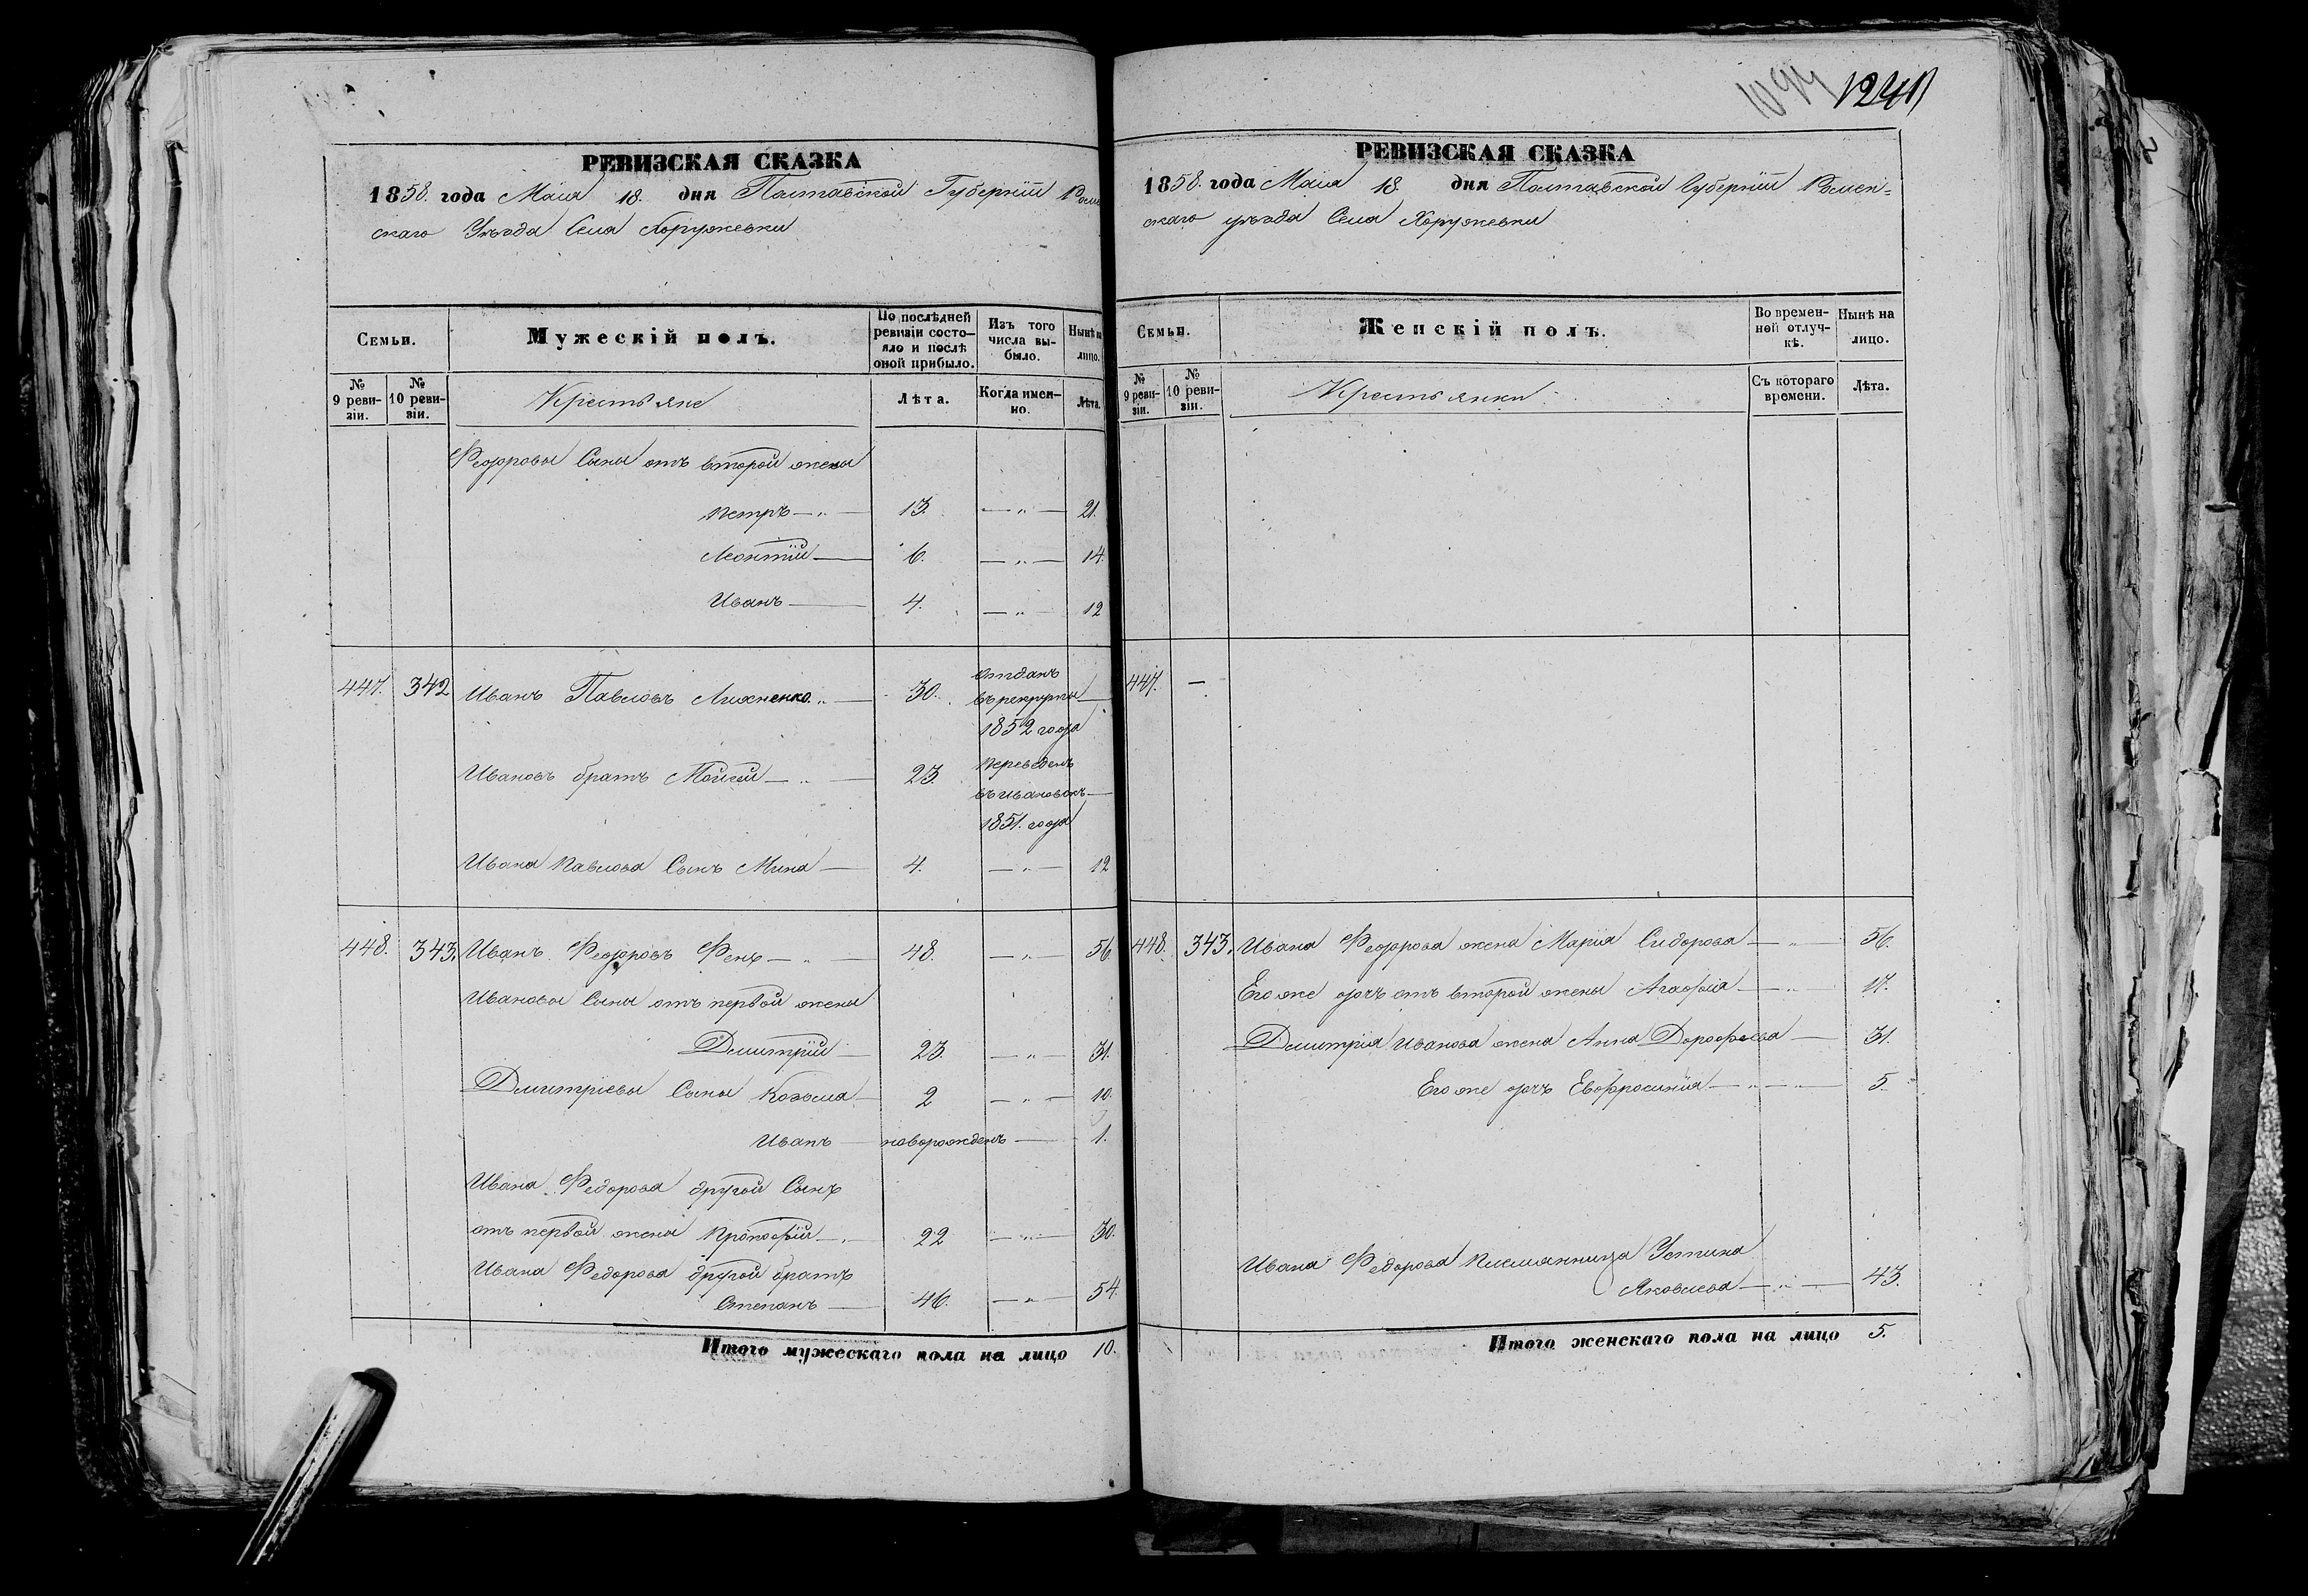 РЕВИЗСКАЯ СКАЗКА
1858. года Маія 18. дня Полтавской Губерніи Роме
скаго Уѣзда Села Хоружевки
Семьи.
Мужескій полъ.
По послѣдней ревизіи состо-
яло и послѣ
оной прибыло.
Изъ того
числа вы-
было.
Нынѣ на
лицо.
№
9 реви-
зіи.
№
10 реви-
зіи.
Крестьяне
Лѣта.
Когда имен-
но.
Лѣта.
Федоровы Сыны отъ второй жены
Петръ — „ — 13. — „ — 21.
Леонтій — 6. — „ — 14.
Иванъ — 4. — „ — 12
447. 342 Иванъ Павловъ Лихненко „ — 30. отданъ
въ рекруты —
1852 года
Ивановъ братъ Мойсей — „ — 23. переведенъ
въ Ивановк —
1851. года
Ивана Павлова Сынъ Мина — 4. — „ — 12
448. 343. Иванъ Федоровъ Фенъ — „ — 48. — „ — 56
Ивановы Сыны отъ первой жены
Дмитрій — 23. — „ 31.
Дмитріевы Сыны Козьма — 2 — „ — 10.
Иванъ — новорожденъ — 1.
Ивана Федорова другой Сынъ
отъ первой жены Прокофій — „ 22 — „ — 30.
Ивана Федорова другой братъ
Степанъ — 46. — „ — 54.
Итого мужескаго пола на лицо 10.
1094 1241
РЕВИЗСКАЯ СКАЗКА
1858. года Маія 18. дня Полтавской Губерніи Ромен-
скаго уѣзда Села Хоружевки
Семьи.
Женскій полъ.
Во времен-
ной отлуч-
кѣ.
Нынѣ на
лицо.
№
9 реви-
зіи.
№
10 реви-
зіи.
Крестьянки
Съ котораго
времени.
Лѣта.
447. —
448. 343. Ивана Федорова жена Марія Сидорова — „ — 56.
Его же дочь отъ второй жены Агафія — „ — 17.
Дмитрія Иванова жена Анна Дорофеева — 31.
Его же дочь Евфросинія — „ — „ — 5.
Ивана Федорова племянница Устина
Яковлева — „ — 43.
Итого женскаго пола на лицо 5.